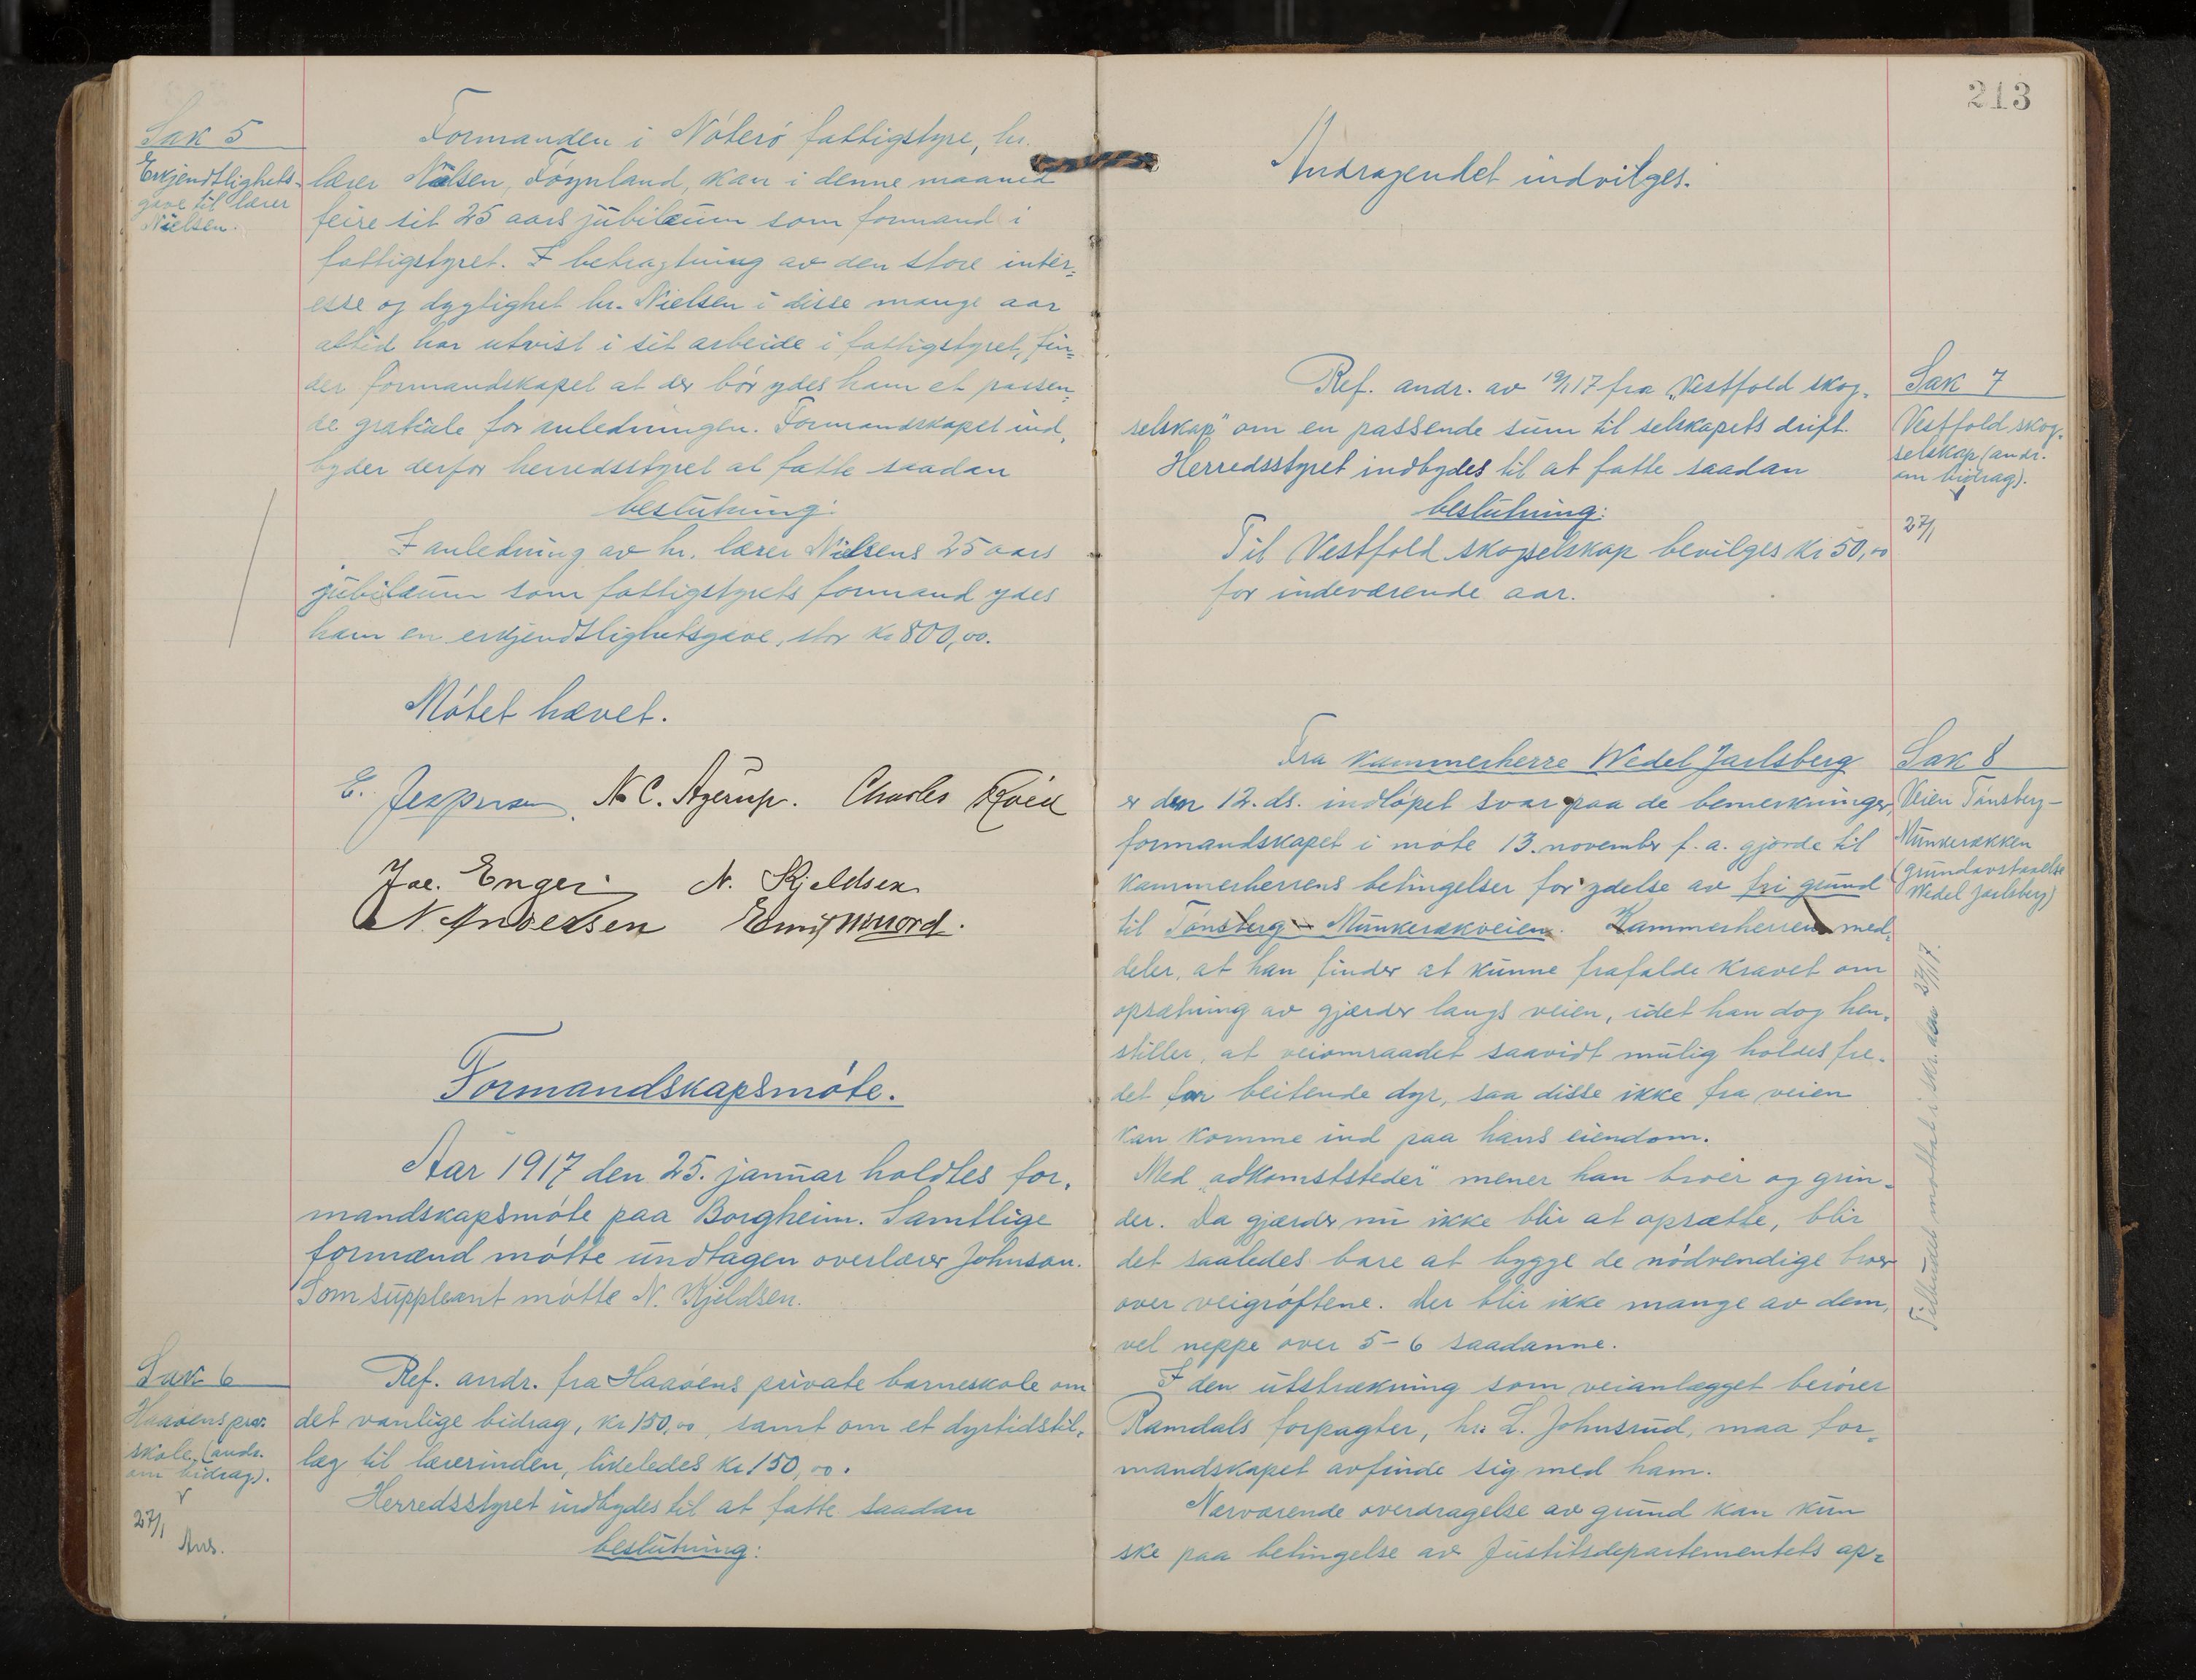 Sak 5
Erkjendtlighets-
gave til lærer
Nielsen.
Formanden i Nóteró fattigstyre, hr.
lærer Nielsen, Föynland, kan i denne maaned
feire sit 25 aars jubilæum som formand i
fattigstyret. I betragtning av den store inter=
esse og dygtighet hr. Nielsen i disse mange aar
altid har utvist i sit arbeide i fattigstyret, fin=
der formandskapet at der bór ydes ham et passen=
de gratiale for anledningen. Formandskapet ind=
byder derfor herredsstyret at fatte saadan
beslutning:
I anledning av hr. lærer Nielsens 25 aars
jubilæum som fattigstyrets formand ydes
ham en erkjendtlighetsgave, stor kr 800,00.
Mótet hævet.
E. Jespersen, N. C. Agerup. Charles Röed
Joe. Enger N. Kjeldsen
N. Andersen
Formandskapsmóte.
Aar 1917 den 25. januar holdtes for=
mandskapsmóte paa Borgheim. Samtlige
formænd mótte undtagen overlærer Johnson.
Som suppleant mótte N. Kjeldsen.
Sak 6
Haaóens priv.
skole (andr.
om bidrag).
27/1
Ref. andr. fra Haaóens private barneskole om
det vanlige bidrag, kr 150,00, samt om et dyrtidstil=
læg til lærerinden, likeledes kr 150,00.
Herredsstyret indbydes til at fatte saadan
beslutning:
213
Andragendet indvilges.
Ref. andr. av 19/1 17 fra „Vestfold skog=
selskap" om en passende sum til selskapets drift.
Herredsstyret indbydes til at fatte saadan
beslutning:
Til Vestfold skogselskap bevilges kr 50,00
for indeværende aar.
Sak 7
Vestfold skog=
selskap (andr.
om bidrag).
27/1
Fra kammerherre Wedel Jarlsberg
er den 12. ds. indlópet svar paa de bemerkninger,
formandskapet i móte 13. november f. a. gjorde til
kammerherrens betingelser for ydelse av fri grund
til Tónsberg – Munkerækveien. Kammerherren med=
deler, at han finder at kunne frafalde kravet om
opsætning av gjærder langs veien, idet han dog hen=
stiller, at veiomraadet saavidt mulig holdes fre=
det for beitende dyr, saa disse ikke fra veien
kan komme ind paa hans eiendom.
Med „adkomststeder" mener han broer og grin=
der. Da gjærder nu ikke blir at opsætte, blir
det saaledes bare at bygge de nódvendige broer
over veigróftene. Der blir ikke mange av dem,
vel neppe over 5–6 saadanne.
I den utstrækning som veianlægget berórer
Ramdals forpagter, hr. L. Johnsrud, maa for=
mandskapet avfinde sig med ham.
Nærværende overdragelse av grund kan kun
ske paa betingelse av Justitsdepartementets ap=
Sak 8
Veien Tónsberg –
Munkerækken
(grundavstaaelse
Wedel Jarlsberg)
Tilbudet mottat i skr. den 27/1 17.